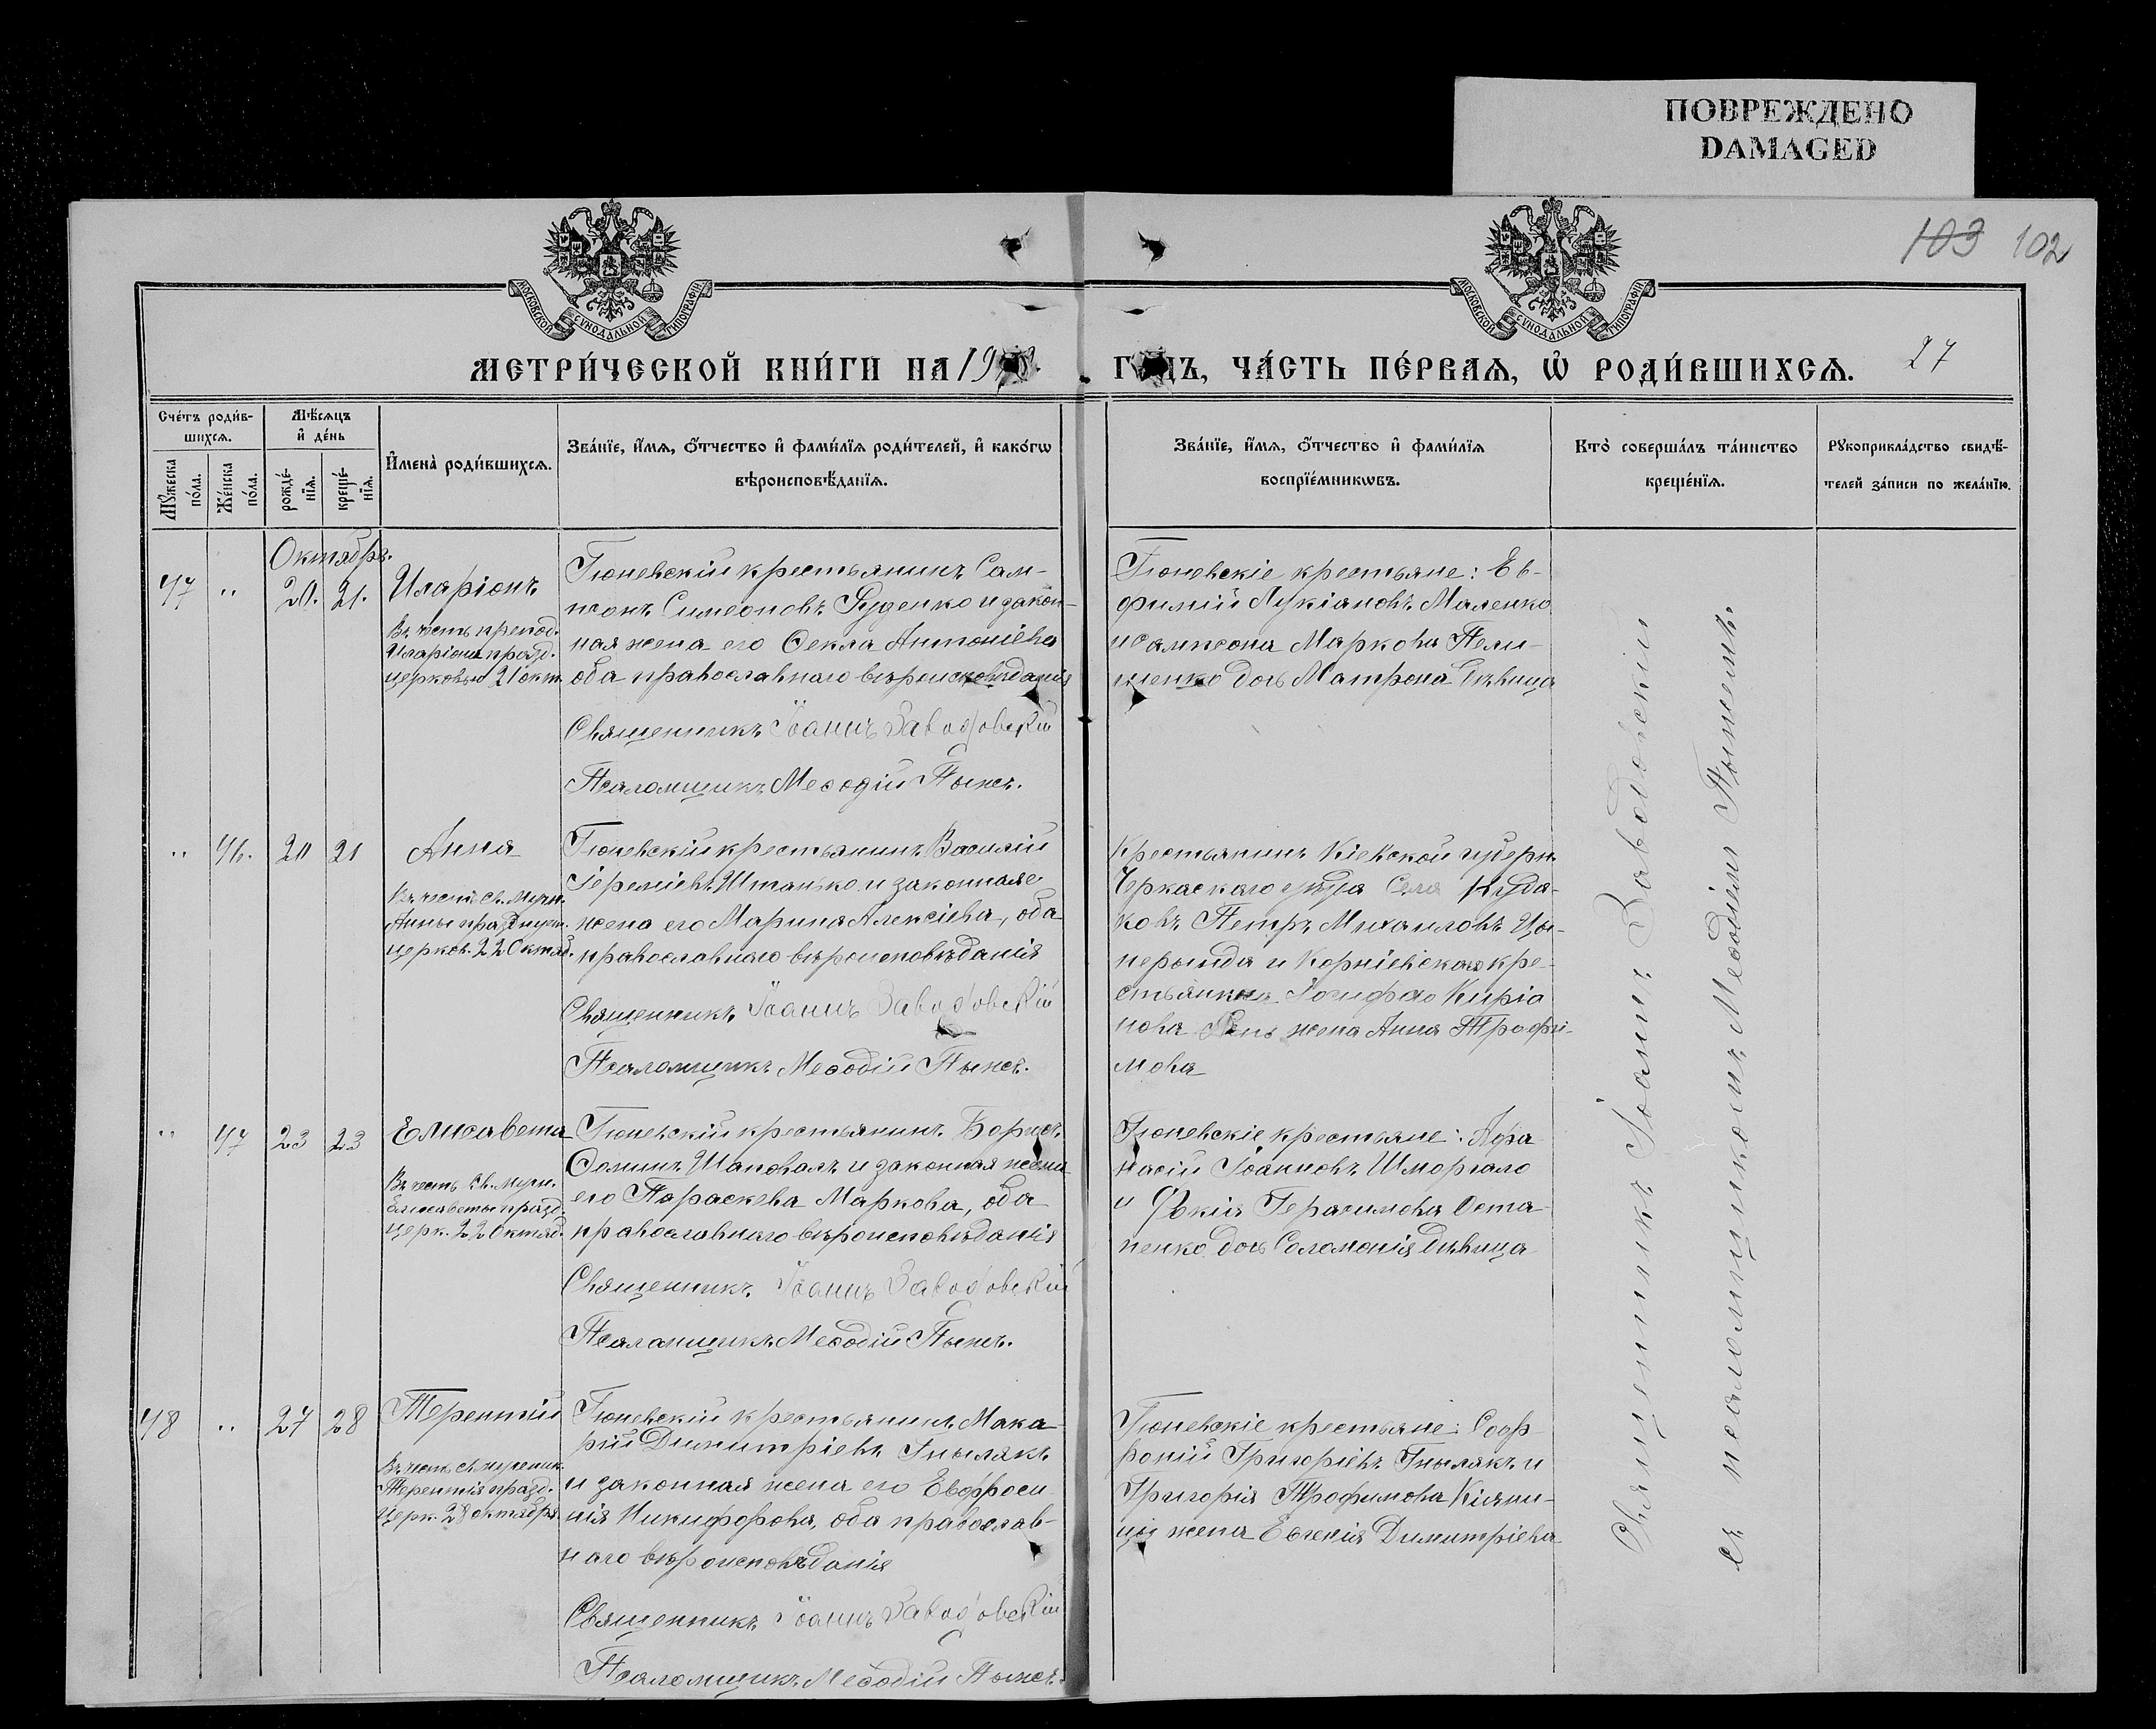 ПОВРЕЖДЕНО
DAMAGED
103 102
МОСКОВСКОЙ СѴНОДАЛЬНОЙ ТИПОГРАФІИ
МОСКОВСКОЙ СѴНОДАЛЬНОЙ ТИПОГРАФІИ
МЕТРИ́ЧЕСКОЙ КНИ́ГИ НА 19
ГОДЪ, ЧА́СТЬ ПЕ́РВАѦ, Ѡ҆ РОДИ́ВШИХСѦ.
27
Сче́тъ роди́в-
шихсѧ.
Мѣ́сѧцъ
и҆ де́нь
Мꙋ́жеска
по́ла.
Же́нска
по́ла.
рожде́-
нїѧ.
креще́-
нїѧ.
И҆мена̀ роди́вшихсѧ.
Зва́нїе, и҆́мѧ, ѻ҆́тчество и҆ фами́лїѧ роди́телей, и҆ како́гѡ
вѣроисповѣ́данїѧ.
Зва́нїе, и҆́мѧ, ѻ҆́тчество и҆ фами́лїѧ
воспрїе́мникѡвъ.
Кто̀ соверша́лъ та́инство
креще́нїѧ.
Рꙋкоприкла́дство свидѣ́-
телей за́писи по жела́нїю.
Октябрь.
47 " 20. 21. Иларіонъ
Въ честь препод.
Иларіона празд.
церковью 21 окт.
крестьянинъ Сам-
Симеоновъ Руденко и закон-
ная жена его Ѳекла Антоніева
оба православнаго вѣроисповѣданія
Священникъ Іоаннъ Заводовскій
Псаломщикъ Меѳодій
крестьяне: Ев-
фимій Лукіановъ Маленко
и Сампсона Маркова Пели-
шенко дочь Матрона дѣвица
" 46. 20 21 Анна
Въ честь св. Мучн.
Анны празднуем.
церков. 22 Октяб.
крестьянинъ Василій
Іереміевъ Штанько и законная
жена его Марина Алексіева, оба
православнаго вѣроисповѣданія
Священникъ Іоаннъ Заводовскій
Псаломщикъ Меѳодій
Крестьянинъ Кіевской губерн.
Черкаскаго уѣзда Села
Петръ Михаиловъ
и Корніевская кре-
стьянина
жена Анна Трофи-
мова
" 47 23 23 Елисавета
Въ честь св. мучн.
Елисаветы празд.
церк. 22 Октяб.
крестьянинъ Борисъ
Ѳоминъ Шаповалъ и законная жена
его Параскева Маркова, оба
православнаго вѣроисповѣданія
Священникъ Іоаннъ Заводовскій
Псаломщикъ Меѳодій
крестьяне: Афа
насій Іоанновъ Шморгало
и Герасимова Оста-
пенко дочь Соломонія дѣвица
48 " 27 28 Терентій
Въ честь св. мученик.
Терентія празд.
церк. 28 октября
крестьянинъ Мака-
рій Димитріевъ Гнылякъ
и законная жена его Евфроси
нія Никифорова, оба православ-
наго вѣроисповѣданія
Священникъ Іоаннъ Заводовскій
Псаломщикъ Меѳодій
крестьяне: Соф-
роній Григоріевъ Гнылякъ и
Григорія Трофимова
жена Евгенія Димитріева
Священникъ Іоаннъ Заводовскій
съ псаломщикомъ Меѳодіемъ